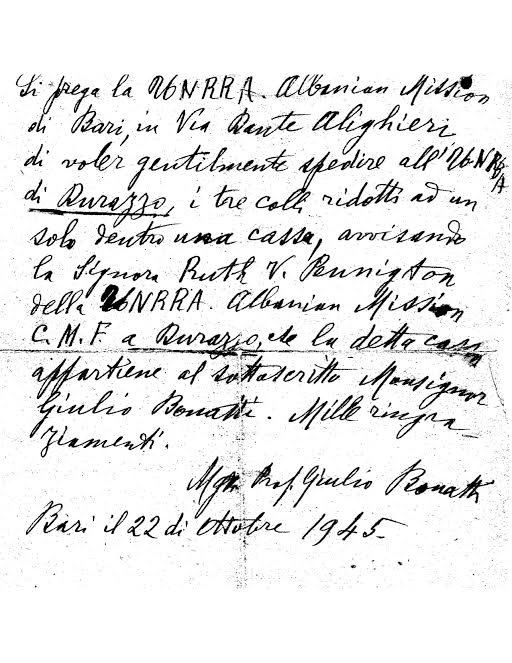 Si prega la UNRRA. Albanian Mission
di Bari, in Via Dante Alighieri
di voler gentilmente spedire all'UNRRA
di Durazzo, i tre colli ridotti ad un
solo dentro una cassa, avvisando
la Signora Ruth V. Pennington
della UNRRA. Albanian Mission
C. M. F. a Durazzo, che la detta cassa
appartiene al sottoscritto Monsignor
Giulio Bonatti. Mille ringra_
ziamenti.
Mgr. Prof. Giulio Bonatti
Bari il 22 di Ottobre 1945